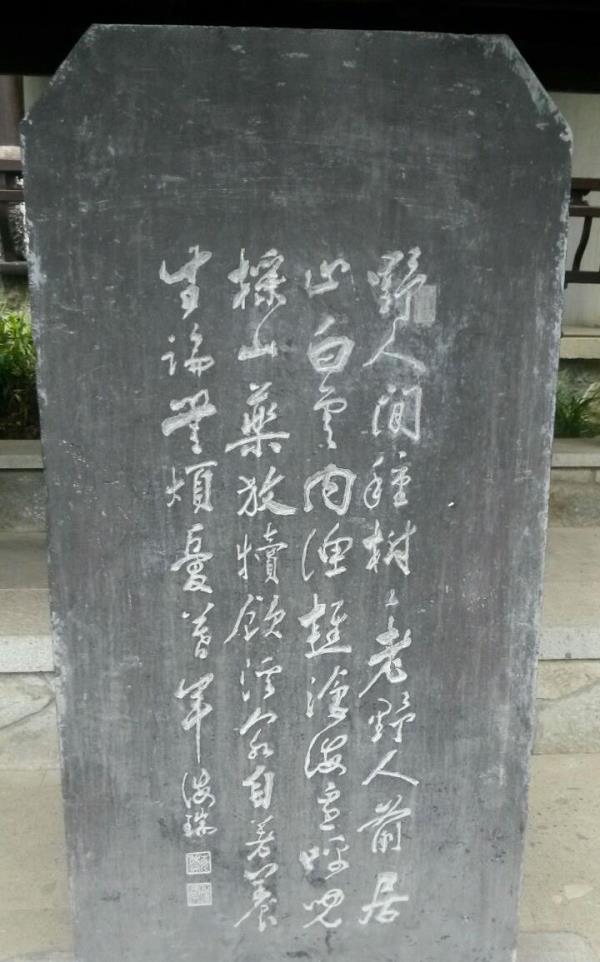 野人閒種樹々老野人前居
山白雲內漁樵滄海邊呼兒
採山藥放犢飲溪泉自著養
生論無煩憂暮年 海瑞